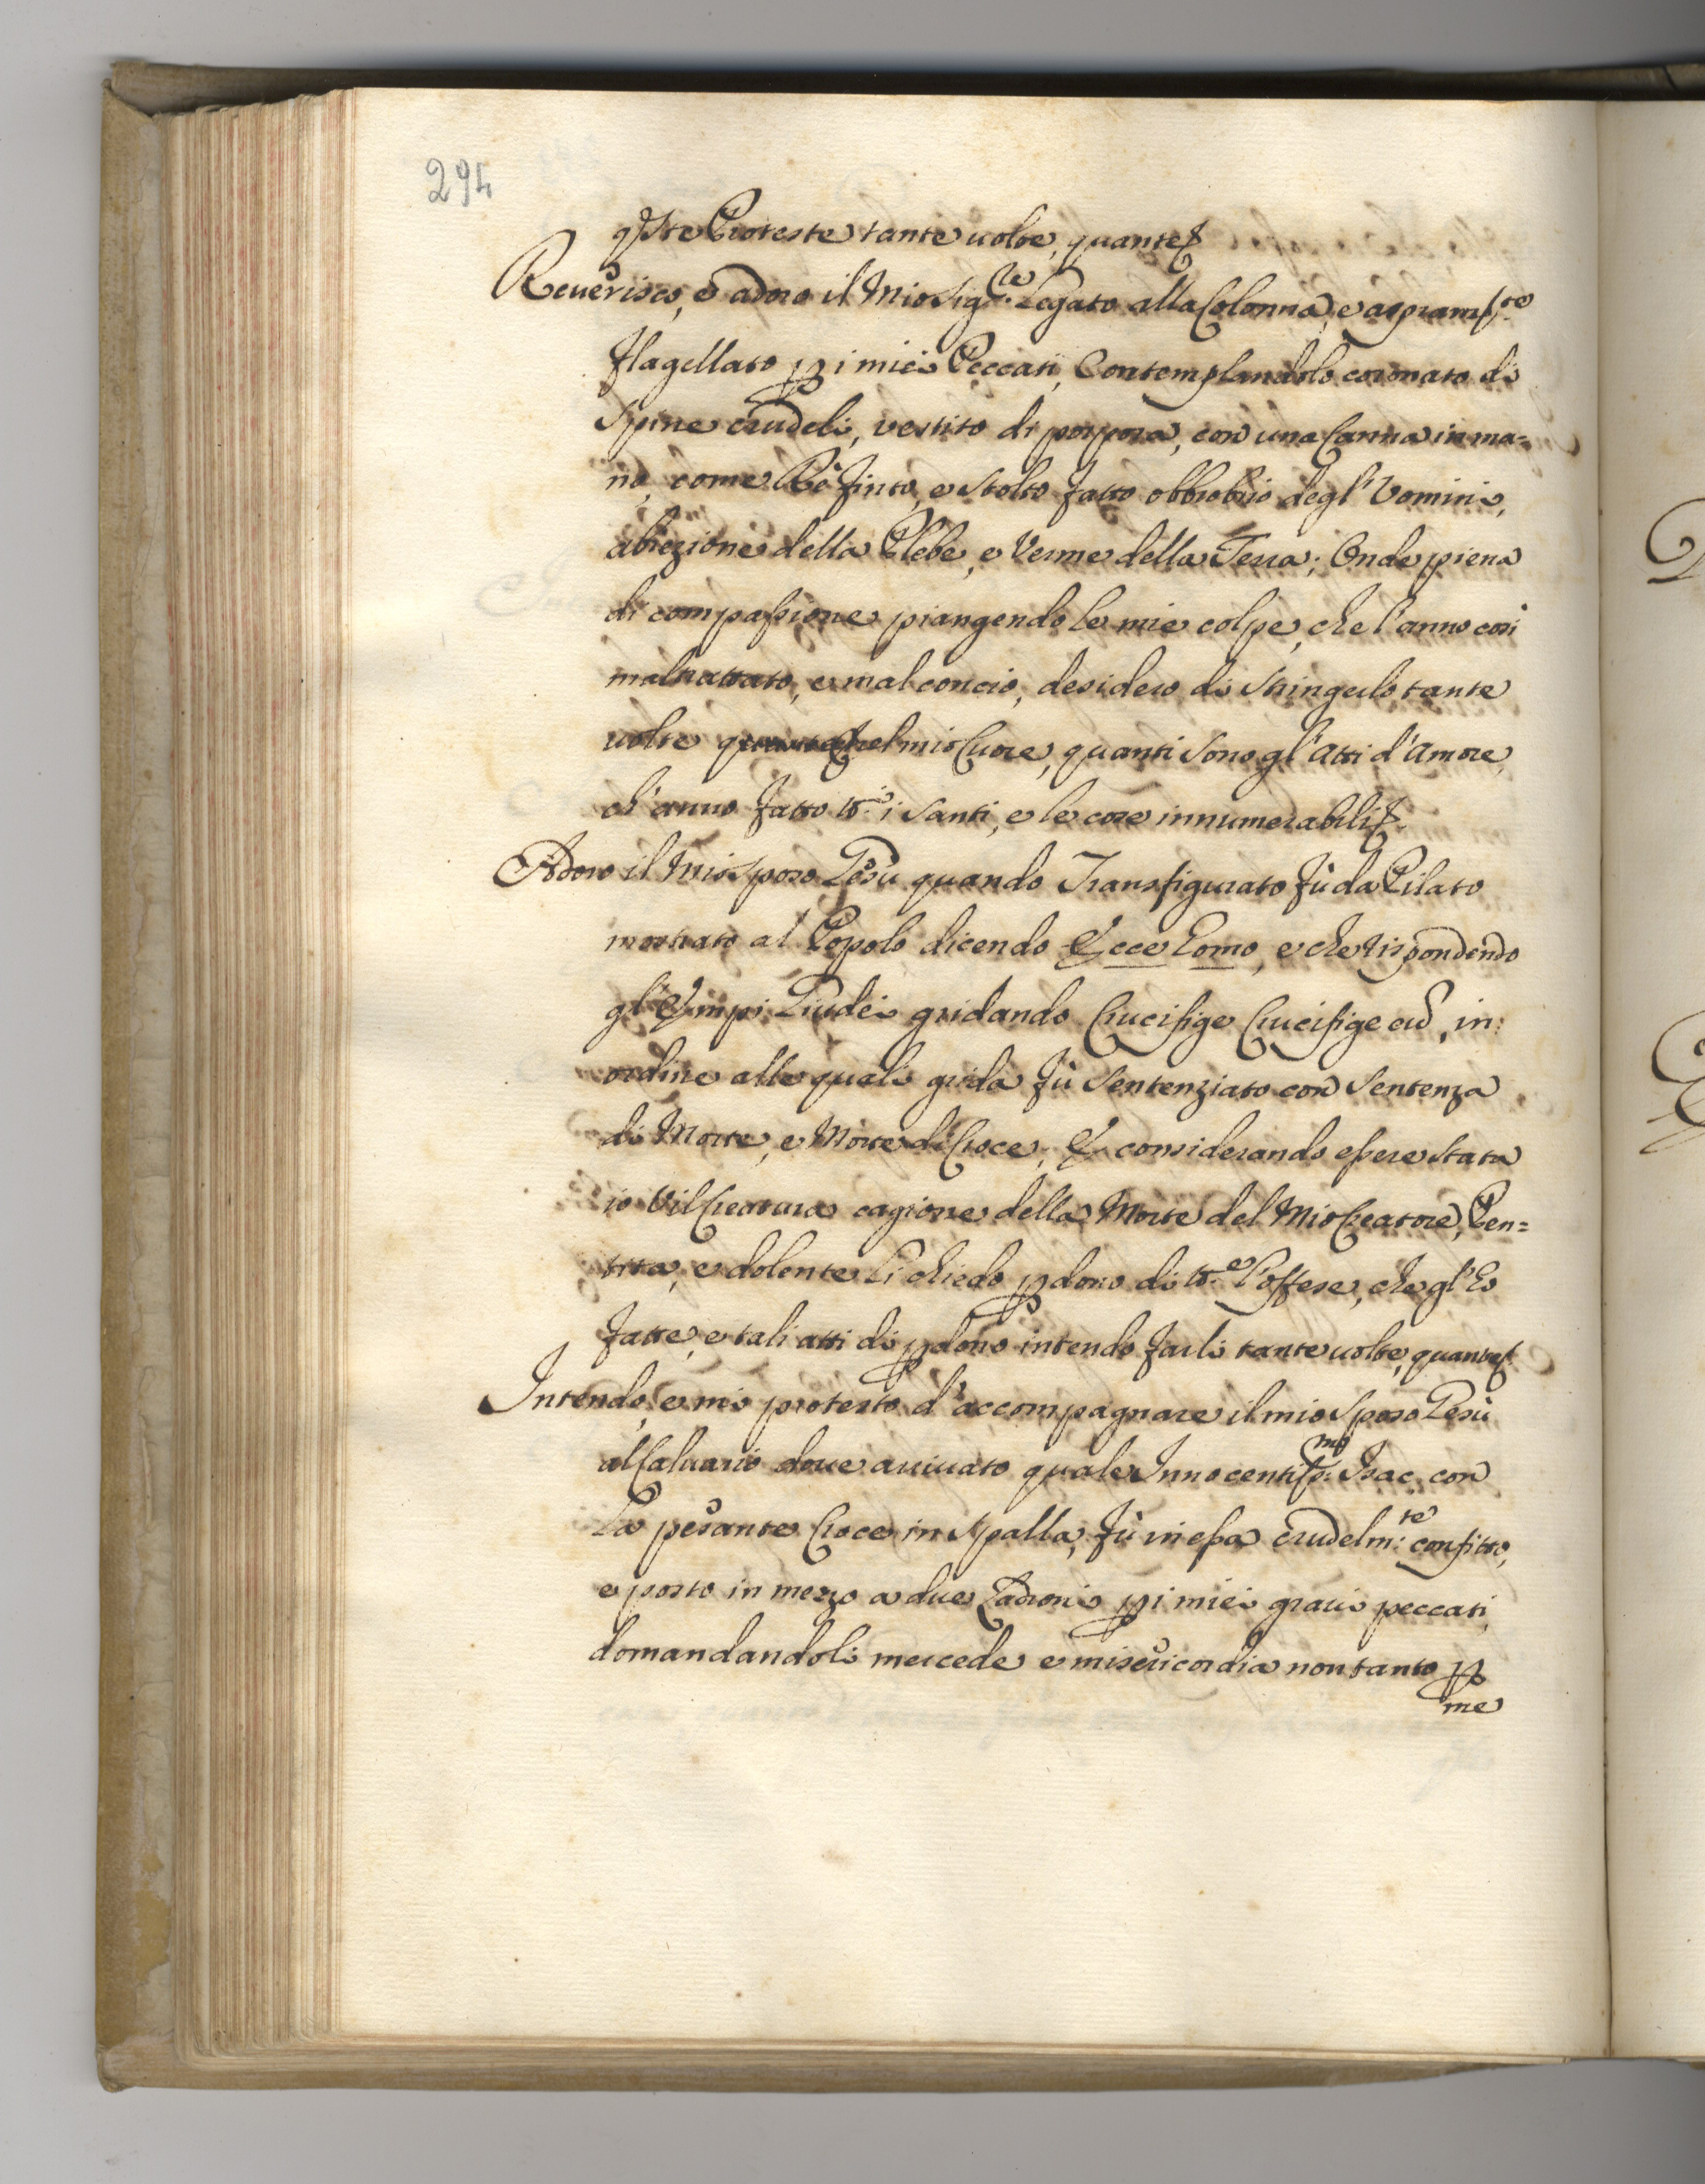 294
qste Proteste tante uolte, quante &
Reuerisco, e adoro il Mio Sig.re Legato alla Colonna, e aspram.te
flagellato p i miei Peccati, Contemplandolo coronato di
Spine crudeli, vestito di porpora, con una Canna in ma=
no, come Rè finto, e Stolto fatto obbrobrio degl' Vomini,
abiezione della Plebe, e Verme della Terra; Onde piena
di compassione piangendo le mie colpe, che l'anno così
maltrattato, e mal concio, desidero di Stringerlo tante
uolte nel mio Cuore, quanti Sono gl'Atti d'Amore,
ch'anno fatto tt.i i Santi, e le cose innumerabili &
Adoro il Mio Sposo Gesù quando Transfigurato fù da Pilato
mostrato al Popolo dicendo Ecce Eomo, e che rispondendo
gl'Empi Giudei gridando Crucifige Crucifige eu, in
ordine alle quali grida fù Sentenziato con Sentenza
di Morte, e Morte di Croce, E considerando essere Stata
io Vil Creatura cagione della Morte del Mio Creatore, Pen=
tita, e dolente li chiedo pdono di tt.e l'offese, che gl'ho
fatte, e tali atti di pdono intendo farli tante uolte, quante &
Intendo, e mi protesto d'accompagnare il mio Sposo Gesù
al Caluario doue arriuato quale Innocentiss.mo Isac con
La pesante Croce in Spalla, fù in essa crudelm.te confitto,
e posto in mezzo a due Ladroni p i miei graui peccati,
domandandoli mercede e misericordia non tanto p
me